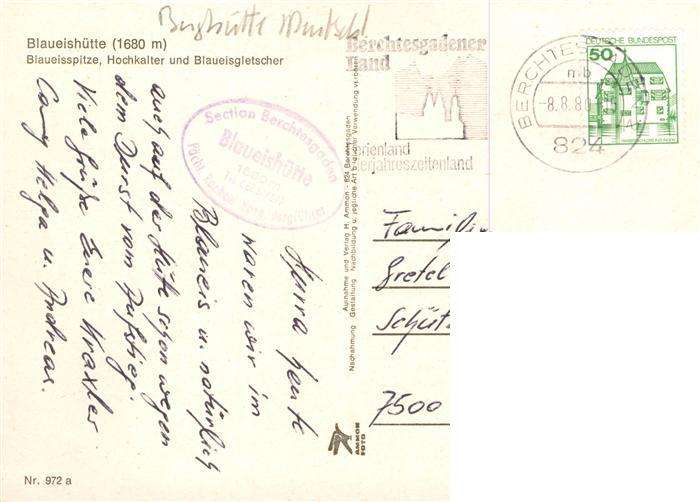 Berghütte
Blaueishütte (1680 m)
Blaueisspitze, Hochkalter und Blaueisgletscher
Hurra heute
waren wir im
Blaueis u. natürlich
auch auf der Hütte schon wegen
dem Durst vom Aufstieg.
Viele Grüße Eure Kraxler
Conny Helga u. Andreas.
Section Berchtesgaden
Blaueishütte
Berchtesgadener
Land
erienland
erjahreszeitenland
BERCHTES
mb
-8.8.80
824
DEUTSCHE BUNDESPOST
50
Aufnahme und Verlag H. Ammon - 824 Berchtesgaden
Nachahmung Gestaltung Nachbildung u. jegliche Art bildlicher Verwendung verboten
Familie
Gretel
Schüt
7500
AMMON
FOTO
Nr. 972 a